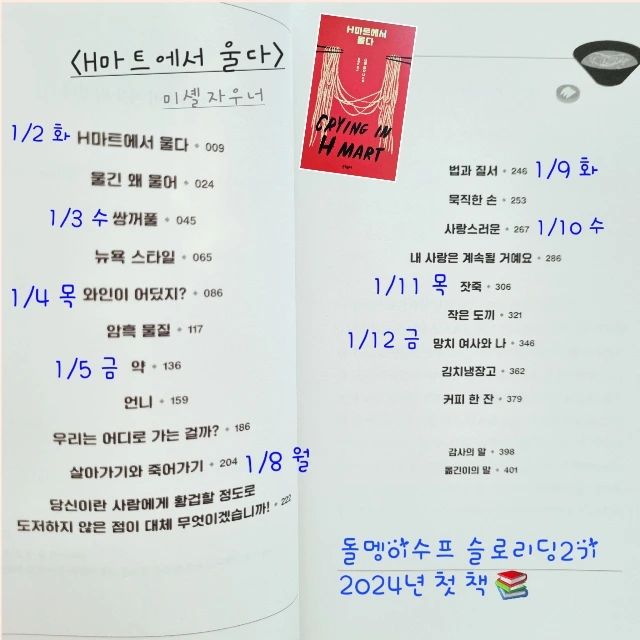 <H마트에서 울다>
미셸 자우너
H마트에서
울다
CRYING IN
H MART
1/2 화 H마트에서 울다 • 009
울긴 왜 울어 • 024
1/3 수 쌍꺼풀 • 045
뉴욕 스타일 • 065
1/4 목 와인이 어딨지? • 086
암흑 물질 • 117
1/5 금 약 • 136
언니 • 159
우리는 어디로 가는 걸까? • 186
살아가기와 죽어가기 • 204 1/8 월
당신이란 사람에게 황겁할 정도로
도저하지 않은 점이 대체 무엇이겠습니까! • 222
법과 질서 • 246 1/9 화
묵직한 손 • 253
사랑스러운 • 267 1/10 수
내 사랑은 계속될 거예요 • 286
1/11 목 잣죽 • 306
작은 도끼 • 321
1/12 금 망치 여사와 나 • 346
김치냉장고 • 362
커피 한 잔 • 379
감사의 말 • 398
옮긴이의 말 • 401
돌멩이수프 슬로리딩2기
2024년 첫 책